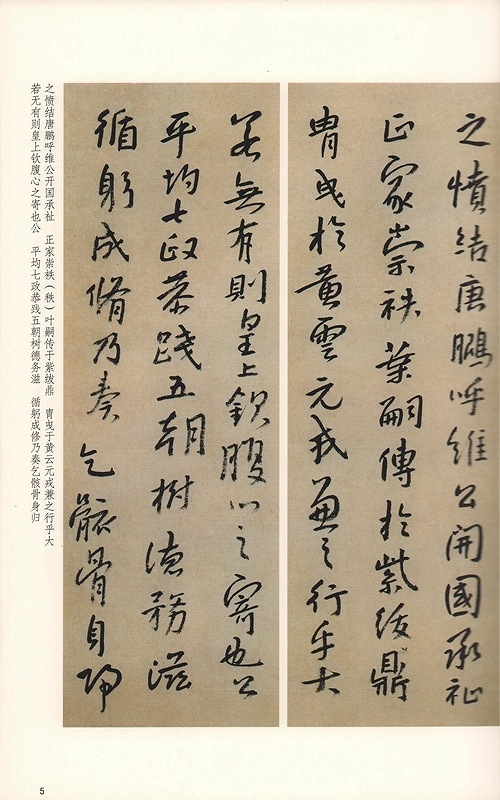 之憤结唐鵬呼維公開國承祉
正家崇袟葉嗣傳於紫紱鼎
胄曳於黄雲元戎兼之行乎大
若無有則皇上欽腹心之寄也公
平均七政恭踐五朝樹德務滋
循躬成脩乃奏乞骸骨身归
之愤结唐鹏呼维公开国承祉 正家崇袟（秩）叶嗣传于紫绂鼎 胄曳于黄云元戎兼之行乎大
若无有则皇上钦腹心之寄也公 平均七政恭践五朝树德务滋 循躬成修乃奏乞骸骨身归
5